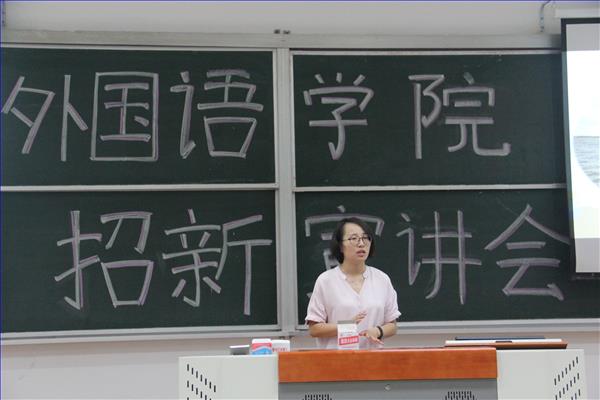 外国语学院
招新宣讲会